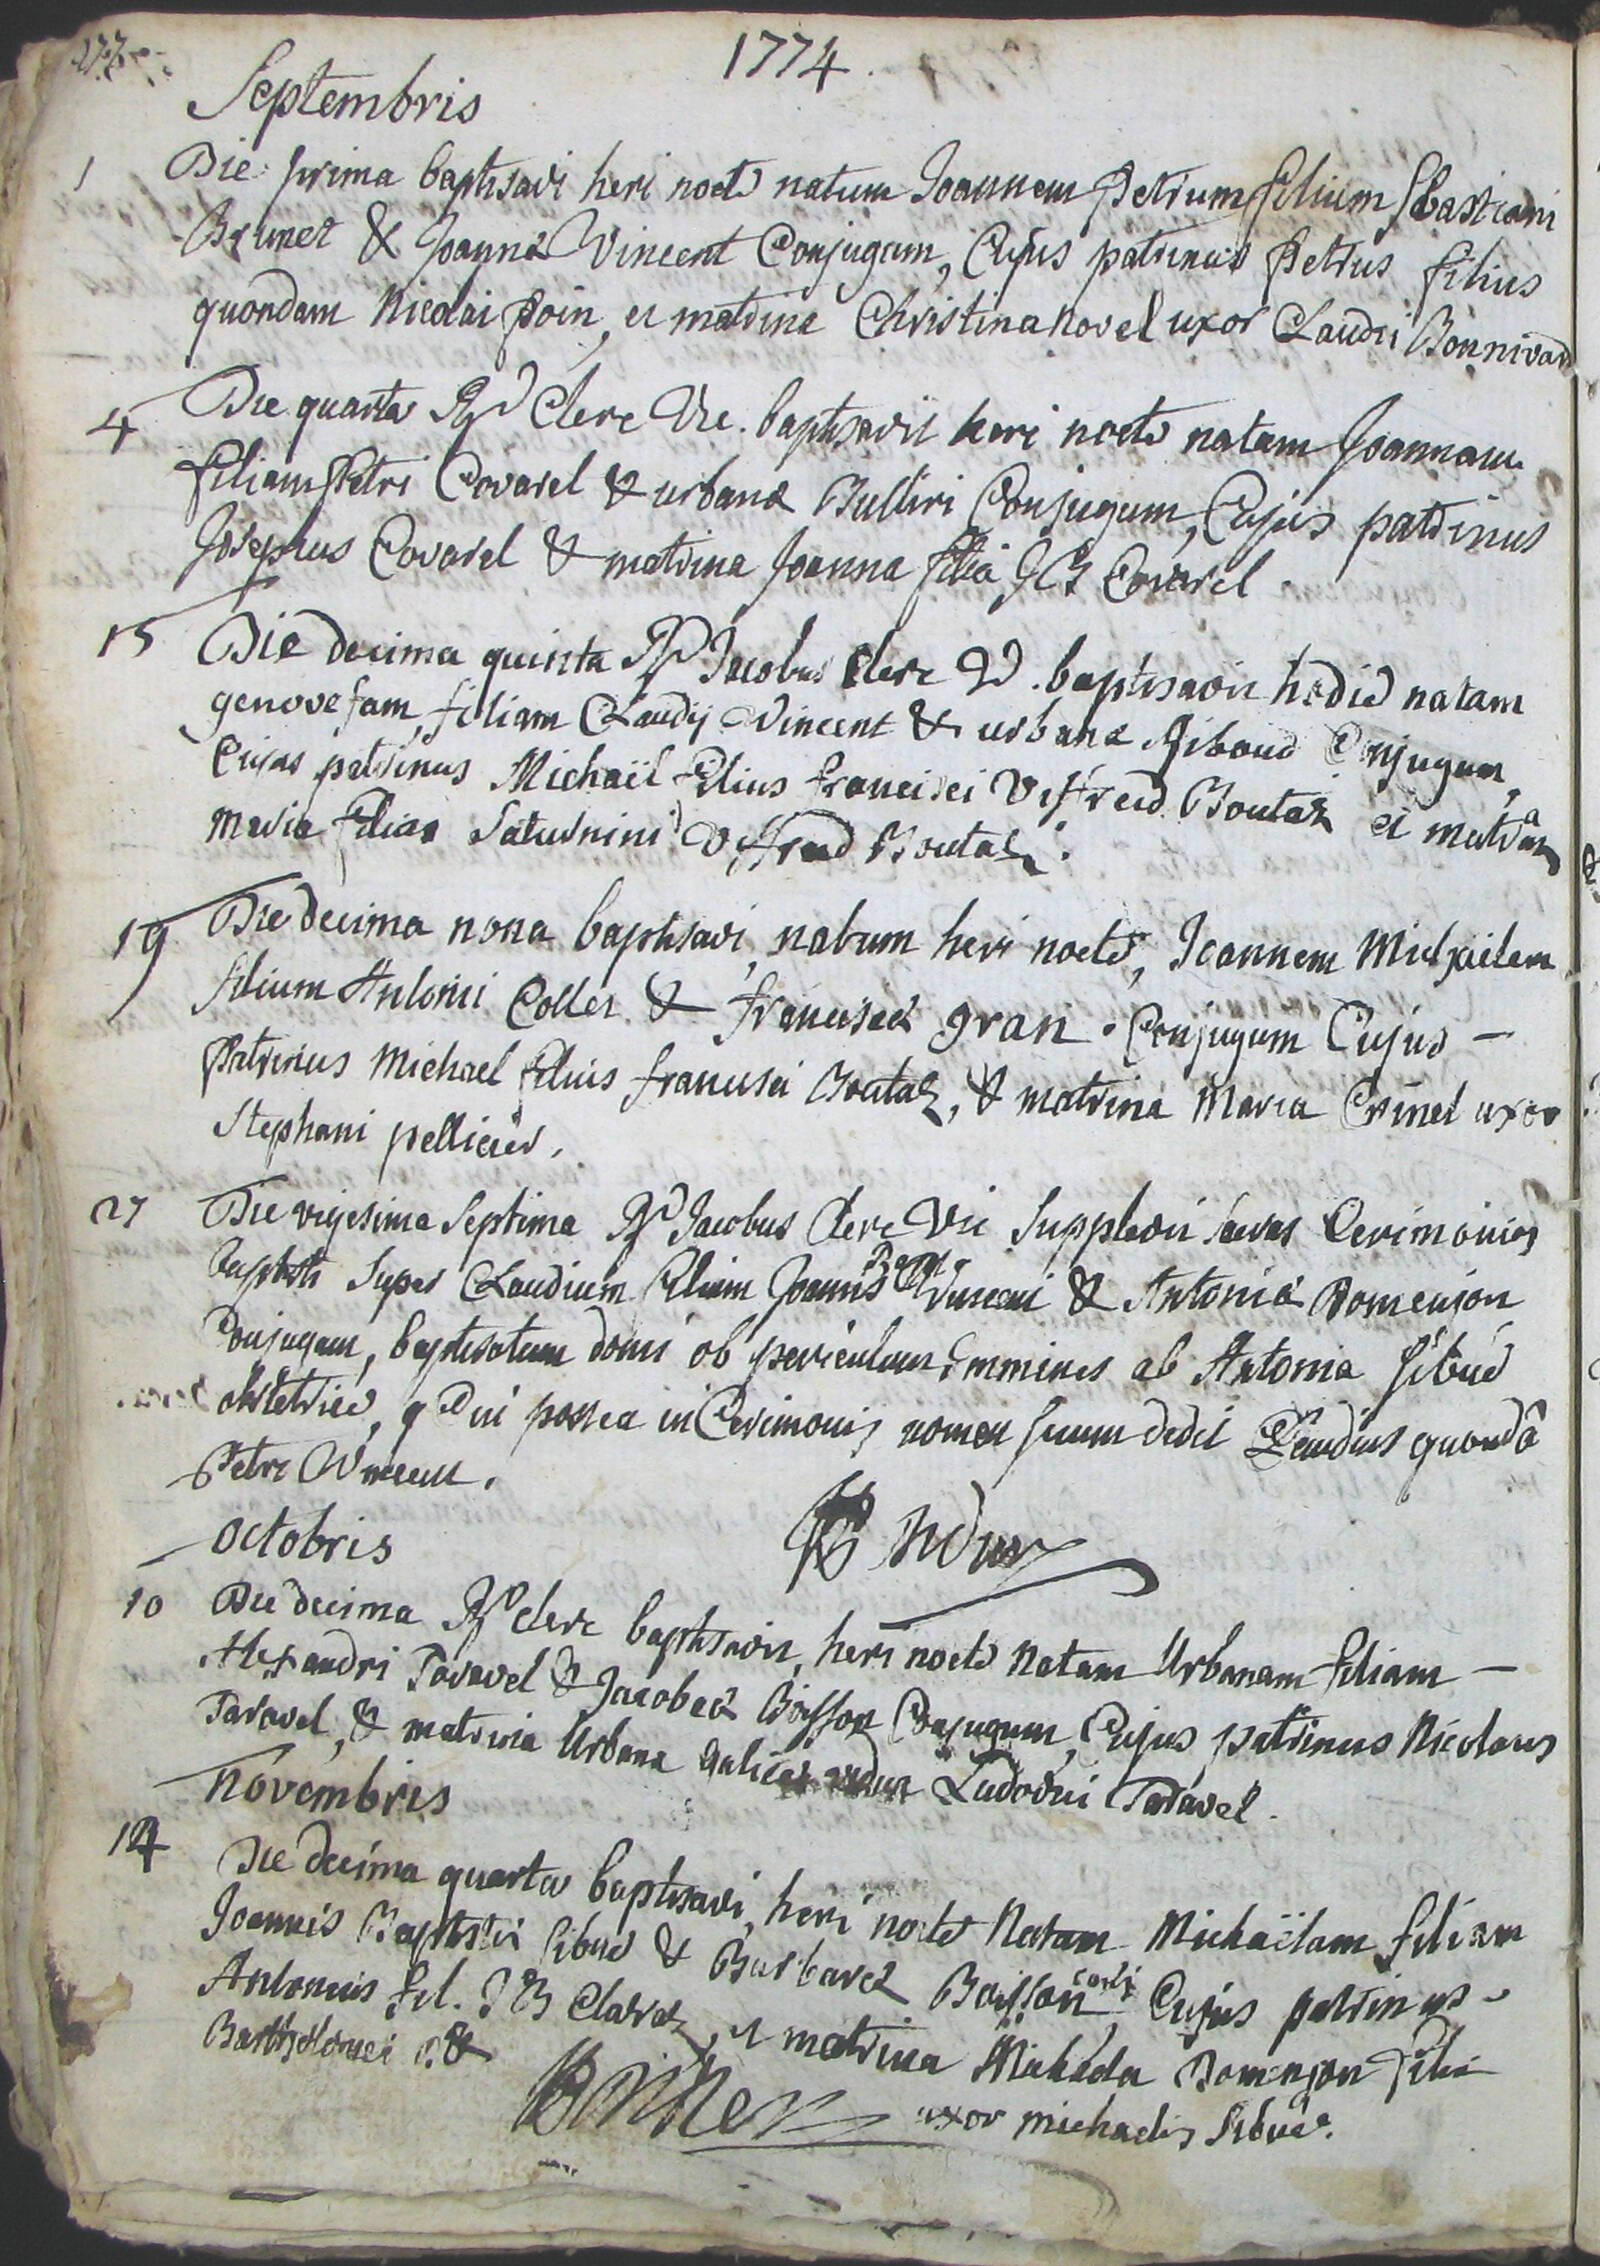 1774.
Septembris
1 Die prima baptisavi heri nocte natum Joannem Petrum filium Sebastiani
Brunet & Joannæ Vincent Conjugum, Cujus patrinus Petrus filius
quondam Nicolai Poin, et matrina Christina novel uxor Claudii Bonnivard
4 Die quarta Rd Clerc Vic. baptisavit heri nocte natam Joannam
filiam Petri Covarel & urbanæ Bulliri Conjugum, Cujus patrinus
Josephus Covarel & matrina Joanna filia J B Covarel
15 Die decima quinta Rd Jacobus Clerc V. baptisavit hodie natam
genovefam filiam Claudij Vincent & urbanæ Giboud Conjugum,
Cujus patrinus Michaël filius francisci Viffred Boutaz et matrina
Maria filia Saturnini Viffred Boutaz.
19 Die decima nona baptisavi, natum heri nocte, Joannem Michaelem
filium Antonii Collet & franciscæ gran. Conjugum Cujus –
Patrinus Michael filius francisci Boutaz, & matrina Maria Crinel uxor
Stephani pellicier.
27 Die vigesima Septima Rd Jacobus Clerc Vic Supplevit sacras Cerimonias
baptisti Super Claudium filium Joannis Bapte Vincent & Antoniæ Domenjon
Conjugum, baptisatum domi ob periculum imminens ab Antonia Sibué
obstetrice, Cui postea in Cerimoniis nomen suum dedit Claudius quondã
Petri Vincent.
octobris
10 Die decima Rd Clerc baptisavit, heri nocte natam Urbanam filiam –
Alexandri Taravel & Jacobeæ Boisson Conjugum, Cujus patrinus Nicolaus
Taravel, & matrina Urbana Galicet vidua Ludovici Taravel.
novembris
14 Die decima quarta baptisavi, heri nocte Natam Michaëlam filiam
Joannis Baptistæ Sibué & Barbaræ Boisson conj. Cujus patrinus –
Antonius fil. J B Claraz, et matrina Michaela Domenjon filia
Bartholomei &
uxor michaelis Sibué.